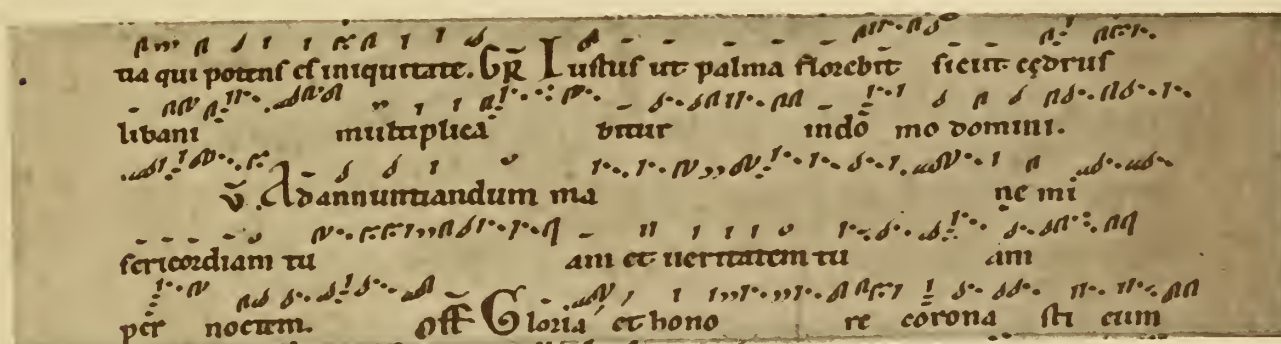 tia qui potens es iniquitate. GR Iustus ut palma florebit sicut cędrus
libani multiplica bitur indō mo domini.
V. Ad annuntiandum ma ne mi
sericordiam tu am et ueritatem tu am
per noctem. Off Gloria et hono re corona sti eum